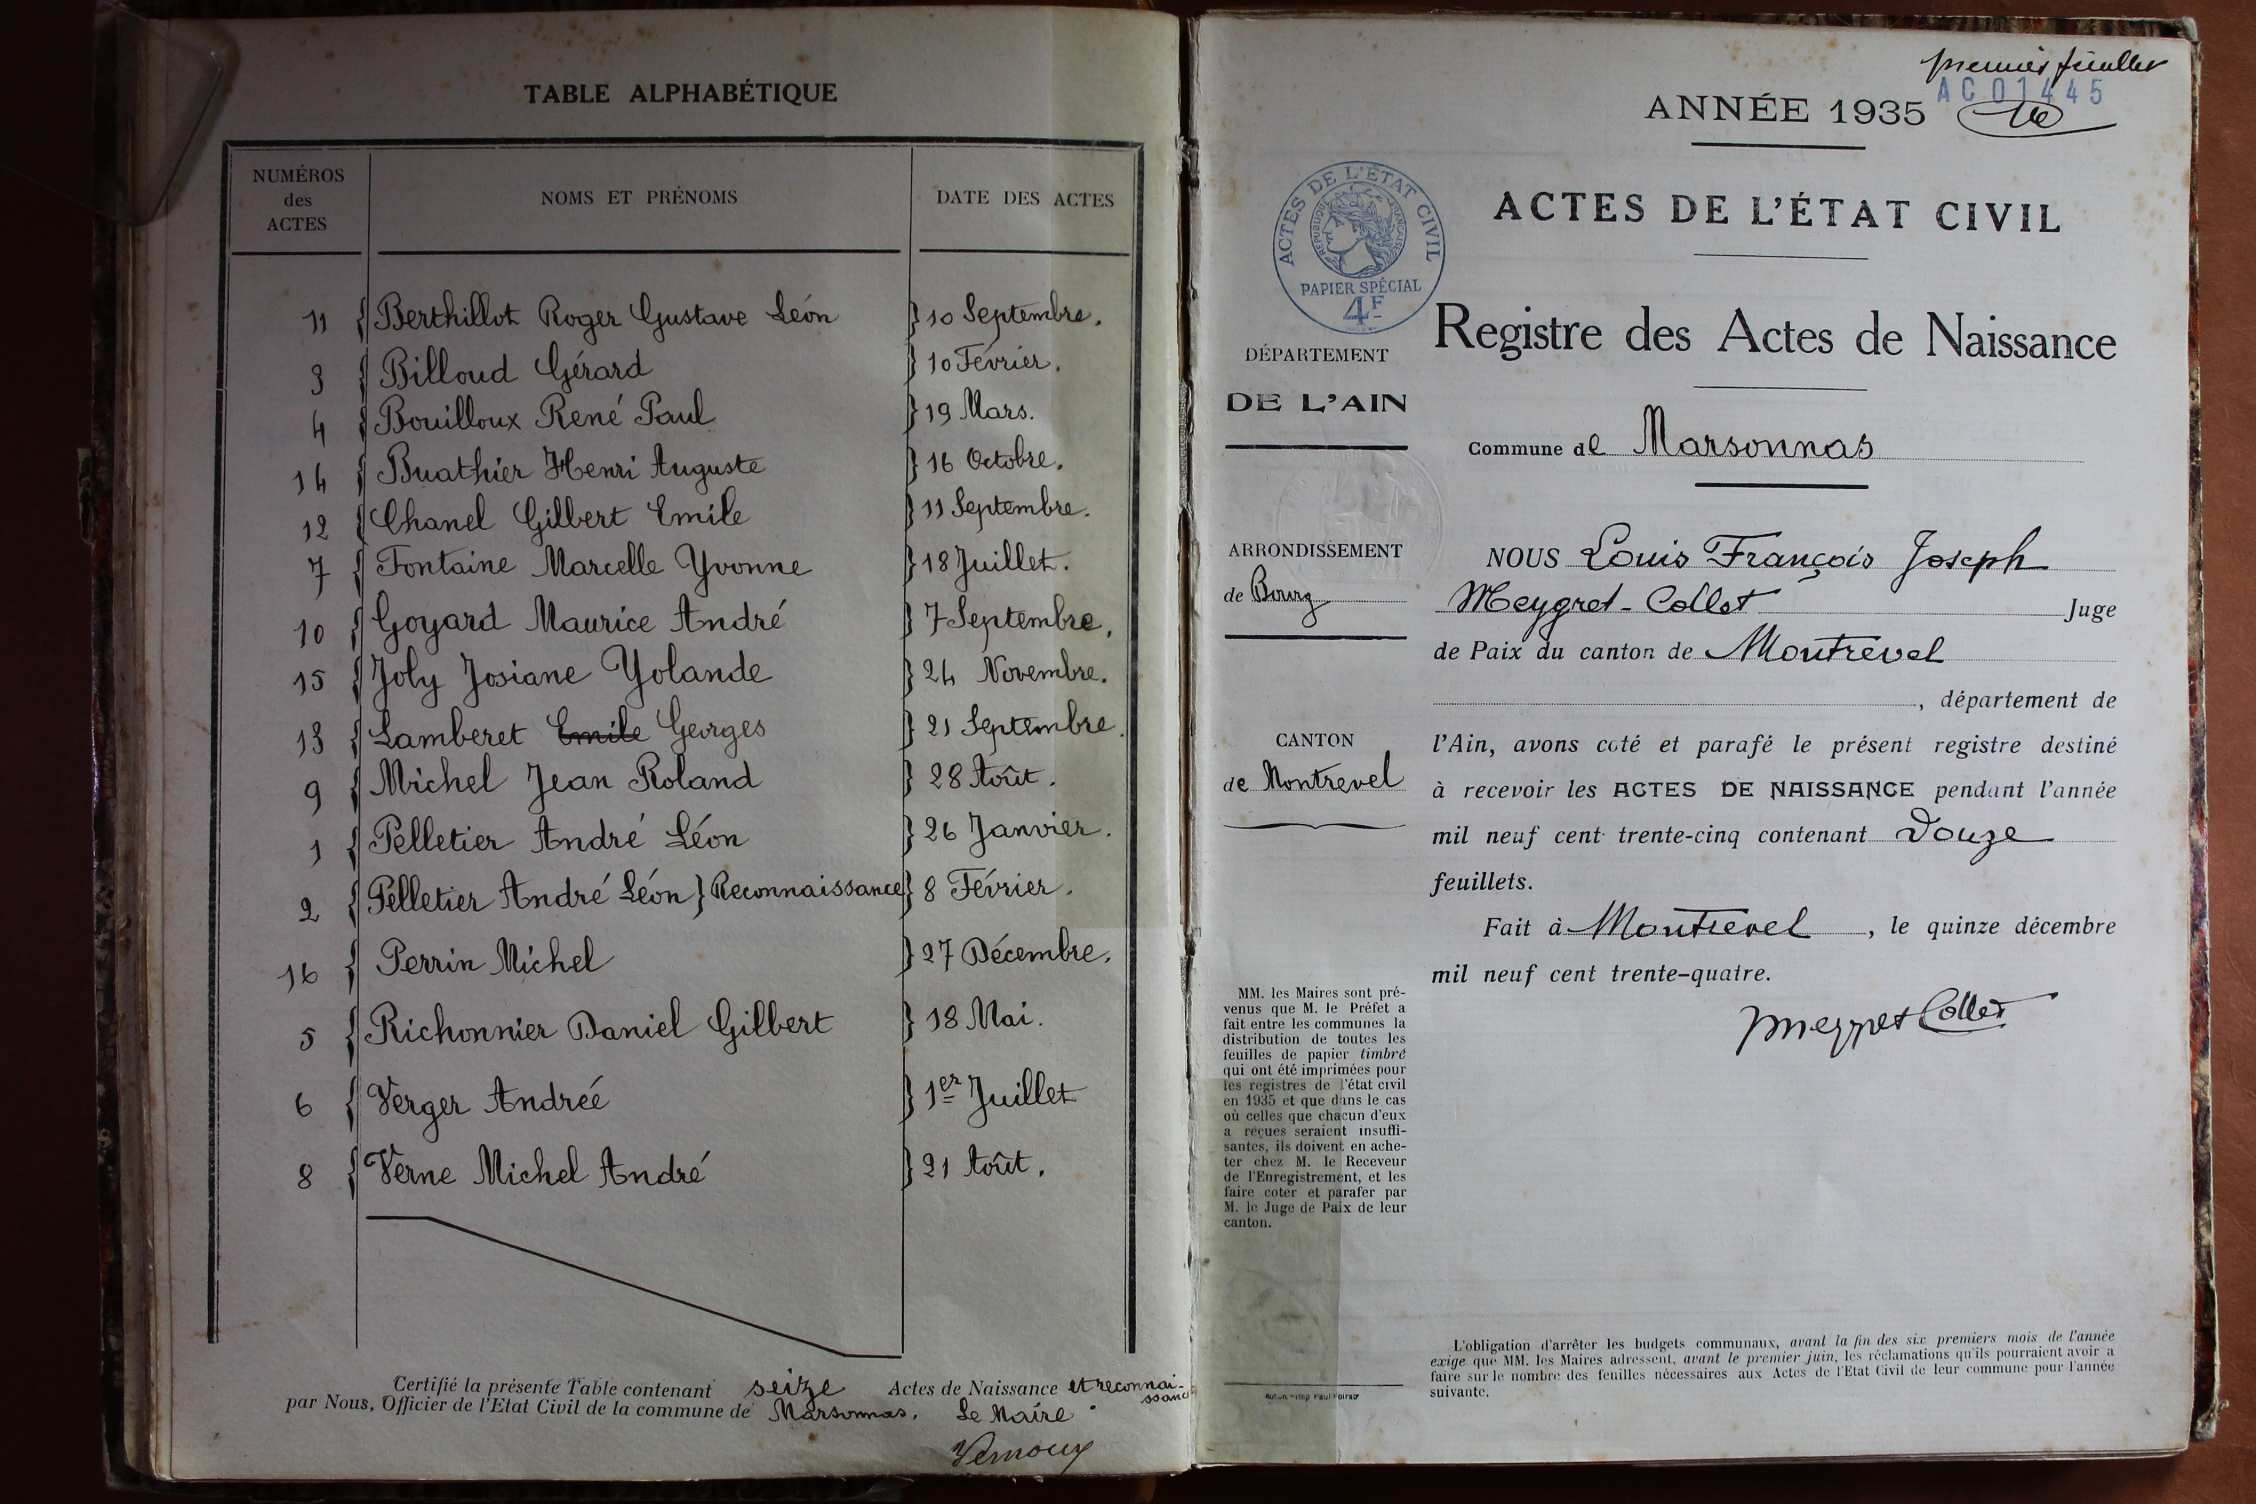 TABLE ALPHABÉTIQUE
NUMÉROS des ACTES
NOMS ET PRÉNOMS
DATE DES ACTES
11 { Berthillot Roger Gustave Léon } 10 Septembre.
3 { Billoud Gérard } 10 Février.
4 { Bouilloux René Paul } 19 Mars.
14 { Buathier Henri Auguste } 16 Octobre.
12 { Chanel Gilbert Emile } 11 Septembre.
7 { Fontaine Marcelle Yvonne } 18 Juillet.
10 { Goyard Maurice André } 7 Septembre.
15 { Joly Josiane Yolande } 24 Novembre.
13 { Lamberet Emile Georges } 21 Septembre.
9 { Michel Jean Roland } 28 Août.
1 { Pelletier André Léon } 26 Janvier.
2 { Pelletier André Léon } Reconnaissance } 8 Février.
16 { Perrin Michel } 27 Décembre.
5 { Richonnier Daniel Gilbert } 18 Mai.
6 { Verger Andrée } 1er Juillet
8 { Verne Michel André } 21 Août.
Certifié la présente Table contenant seize Actes de Naissance et reconnaissance
par Nous, Officier de l'Etat Civil de la commune de Marsonnas. Le Maire
premier feuillet
AC01445
ANNÉE 1935
ACTES DE L'ÉTAT CIVIL
RÉPUBLIQUE FRANÇAISE
PAPIER SPÉCIAL
4F
ACTES DE L'ÉTAT CIVIL
Registre des Actes de Naissance
DÉPARTEMENT
DE L'AIN
Commune de Marsonnas
ARRONDISSEMENT
de Bourg
CANTON
de Montrevel
NOUS Louis François Joseph
Meygret-Collet Juge
de Paix du canton de Montrevel
, département de
l'Ain, avons coté et parafé le présent registre destiné
à recevoir les ACTES DE NAISSANCE pendant l'année
mil neuf cent trente-cinq contenant Douze
feuillets.
Fait à Montrevel, le quinze décembre
mil neuf cent trente-quatre.
Meygret Collet
MM. les Maires sont pré-
venus que M. le Préfet a
fait entre les communes la
distribution de toutes les
feuilles de papier timbré
qui ont été imprimées pour
les registres de l'état civil
en 1935 et que dans le cas
où celles que chacun d'eux
a reçues seraient insuffi-
santes, ils doivent en ache-
ter chez M. le Receveur
de l'Enregistrement, et les
faire coter et parafer par
M. le Juge de Paix de leur
canton.
L'obligation d'arrêter les budgets communaux, avant la fin des six premiers mois de l'année
exige que MM. les Maires adressent, avant le premier juin, les réclamations qu'ils pourraient avoir a
faire sur le nombre des feuilles nécessaires aux Actes de l'Etat Civil de leur commune pour l'année
suivante.